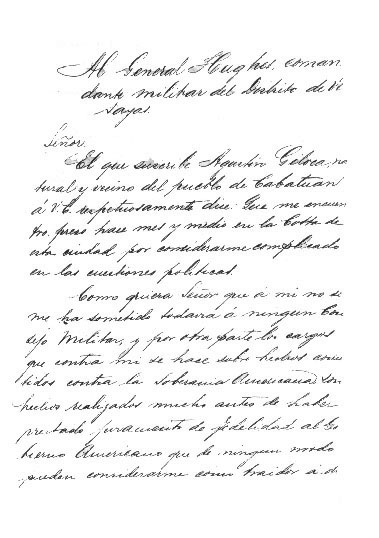 Al General Hughes, coman
dante militar del Distrito de Vi
sayas.
Señor.
El que suscribe Agustin Geloca, na
tural y vecino del pueblo de Cabatuan
á V.E. respetuosamente dice: Que me encuen
tro preso hace mes y medio en la Cotta de
esta ciudad por considerarme complicado
en las cuestiones politicas.
Como quiera Señor que á mi no se
me ha sometido todavia á ningun Con
sejo Militar, y por otra parte los cargos
que contra mi se hace sobre hechos come
tidos contra la Soberania Americana son
hechos realizados mucho antes de haber
prestado juramento de fidelidad al Go
bierno Americano que de ningun modo
pueden considerarme como traidor á d